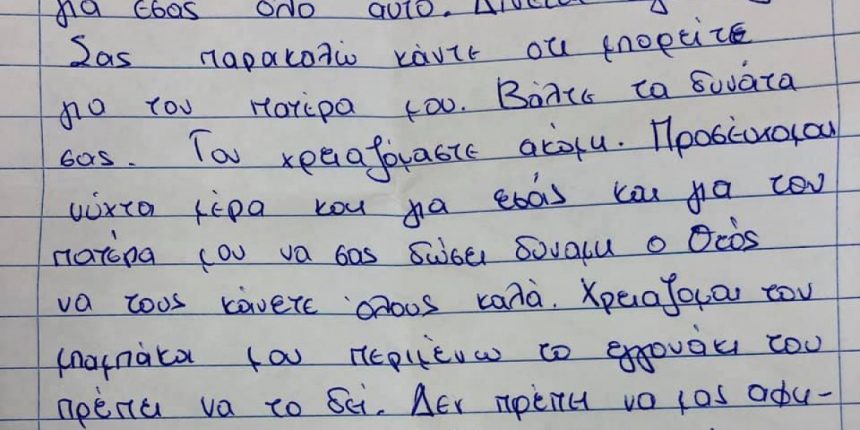 για εσας όλο αυτό.
Σας παρακαλώ κάντε οτι μπορείτε
για τον πατέρα μου. Βάλτε τα δυνάτα
σας. Τον χρειαζόμαστε ακόμη. Προσέυχομαι
νύχτα μέρα και για εσάς και για τον
πατέρα μου να σας δώσει δυναμη ο Θεός
να τους κάνετε όλους καλά. Χρειαζομαι τον
μπαμπάκα μου περιμένω το εγγονάκι του
πρέπει να το δεί. Δεν πρέπει να μας αφη-